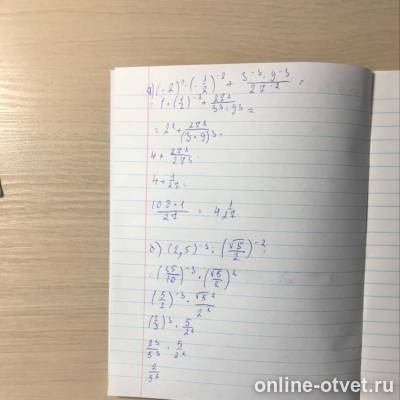 а) (-2)⁰ · (-1/2)⁻² + 3⁻³ · 9⁻³ / 27⁻² =
= 1 · (1/2)⁻² + 27² / 3³ · 9³ =
= 2² + 27² / (3 · 9)³ =
4 + 27² / 27³ =
4 + 1/27 =
108 + 1 / 27 = 4 1/27
б) (2,5)⁻³ · (√5/2)⁻²
(25/10)⁻³ ·
(5/2)⁻³ · √5² / 2²
5/2²
2³/5³ · 5/2²
2/5²
online-otvet.ru